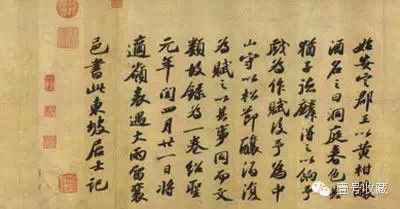 始安定郡王以黃柑釀
酒名之曰洞庭春色其
猶子德麟得之以餉予
戲為作賦後予為中
山守以松節釀酒復
為賦之以其事同而文
類故錄為一卷紹聖
元年閏四月廿一日將
適嶺表遇大雨留襄
邑書此東坡居士記
壹号收藏